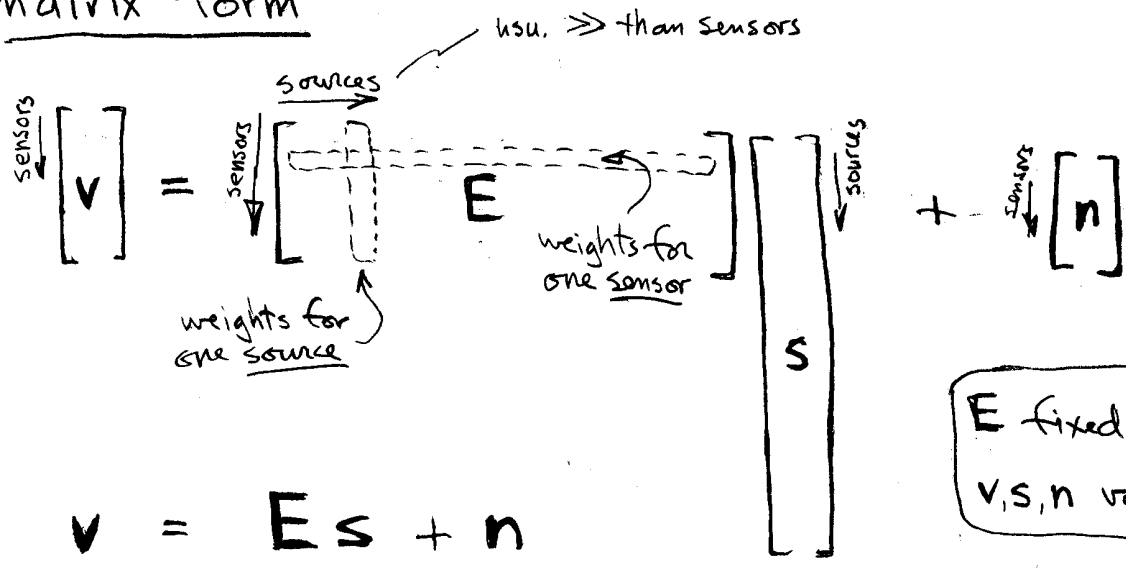 matrix form
usu. ≫ than sensors
sources
sensors
v
=
sensors
E
sources
+
sensors
n
weights for
one sensor
weights for
one source
s
E fixed
v,s,n
v = Es + n